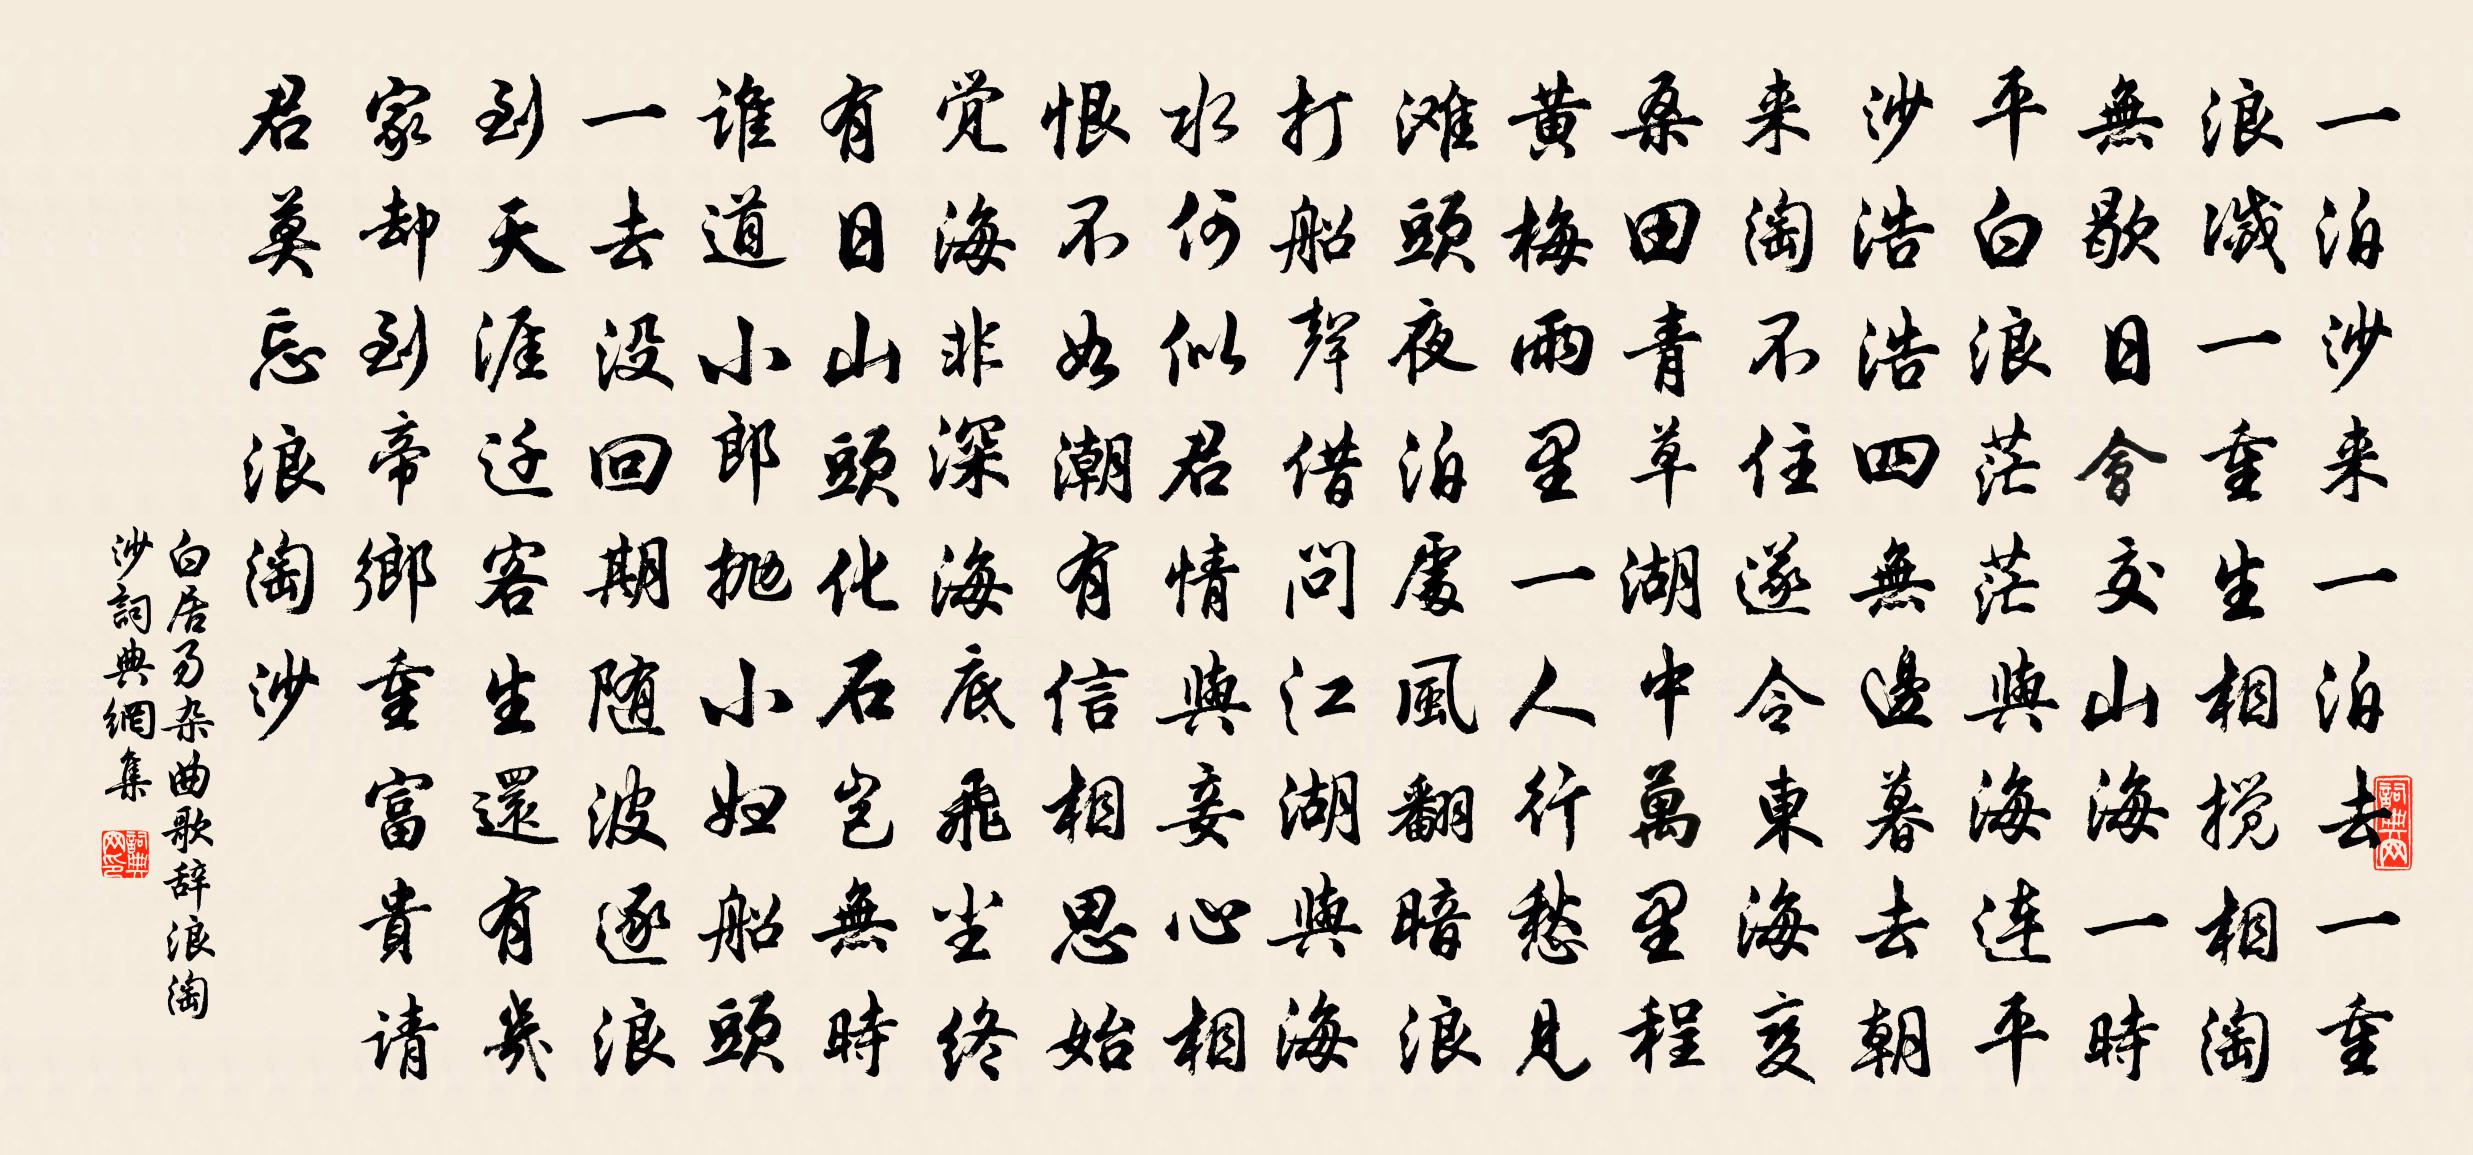 一泊沙来一泊去一重
浪滅一重生相搅相淘
無歇日會交山海一時
平白浪茫茫與海连平
沙浩浩四無邊暮去朝
来淘不住遂令東海变
桑田青草湖中萬里程
黄梅雨里一人行愁見
滩頭夜泊處風翻暗浪
打船聲借问江湖與海
水何似君情與妾心相
恨不如潮有信相思始
觉海非深海底飛尘终
有日山頭化石岂無時
谁道小郎抛小妇船頭
一去没回期随波逐浪
到天涯迁客生還有幾
家却到帝鄉重富貴请
君莫忘浪淘沙
白居易杂曲歌辞浪淘
沙詞典網集
詞典网
詞典网印